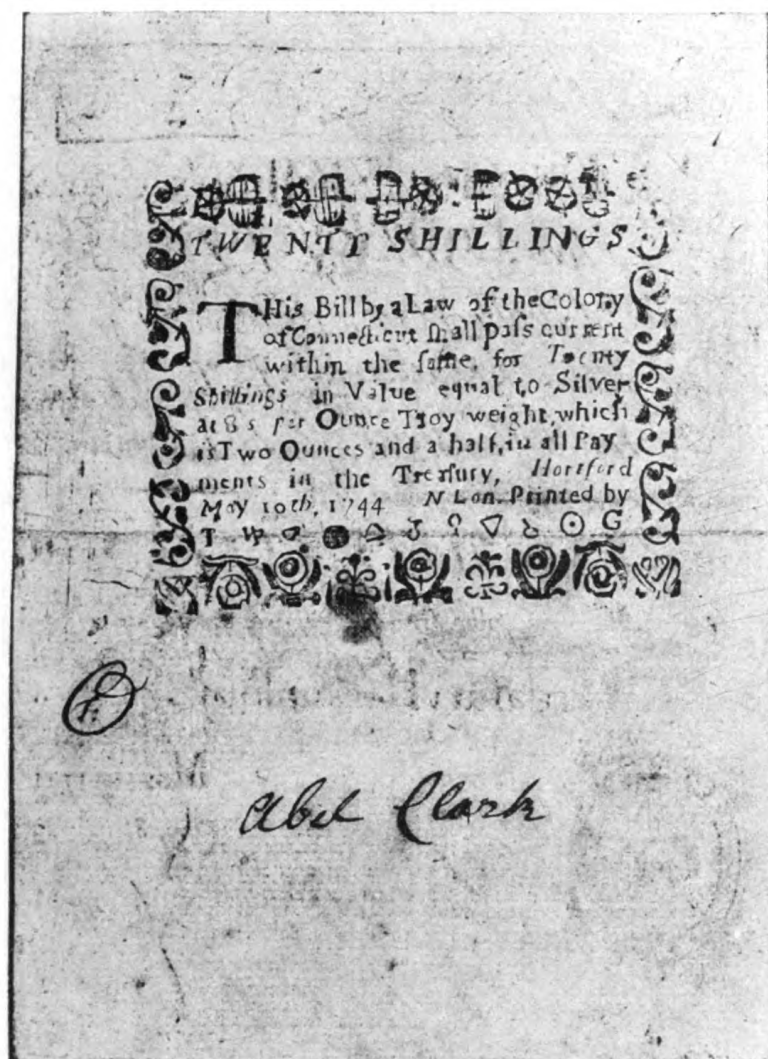 TWENTY SHILLINGS
THis Bill by a Law of the Colony
of Connecticut ſhall paſs current
within the ſame, for Twenty
Shillings in Value equal to Silver
at 8 s per Ounce Troy weight, which
is Two Ounces and a half, in all Pay
ments in the Treaſury, Hartford
May 10th, 1744 N Lon. Printed by
T G
Abel Clark